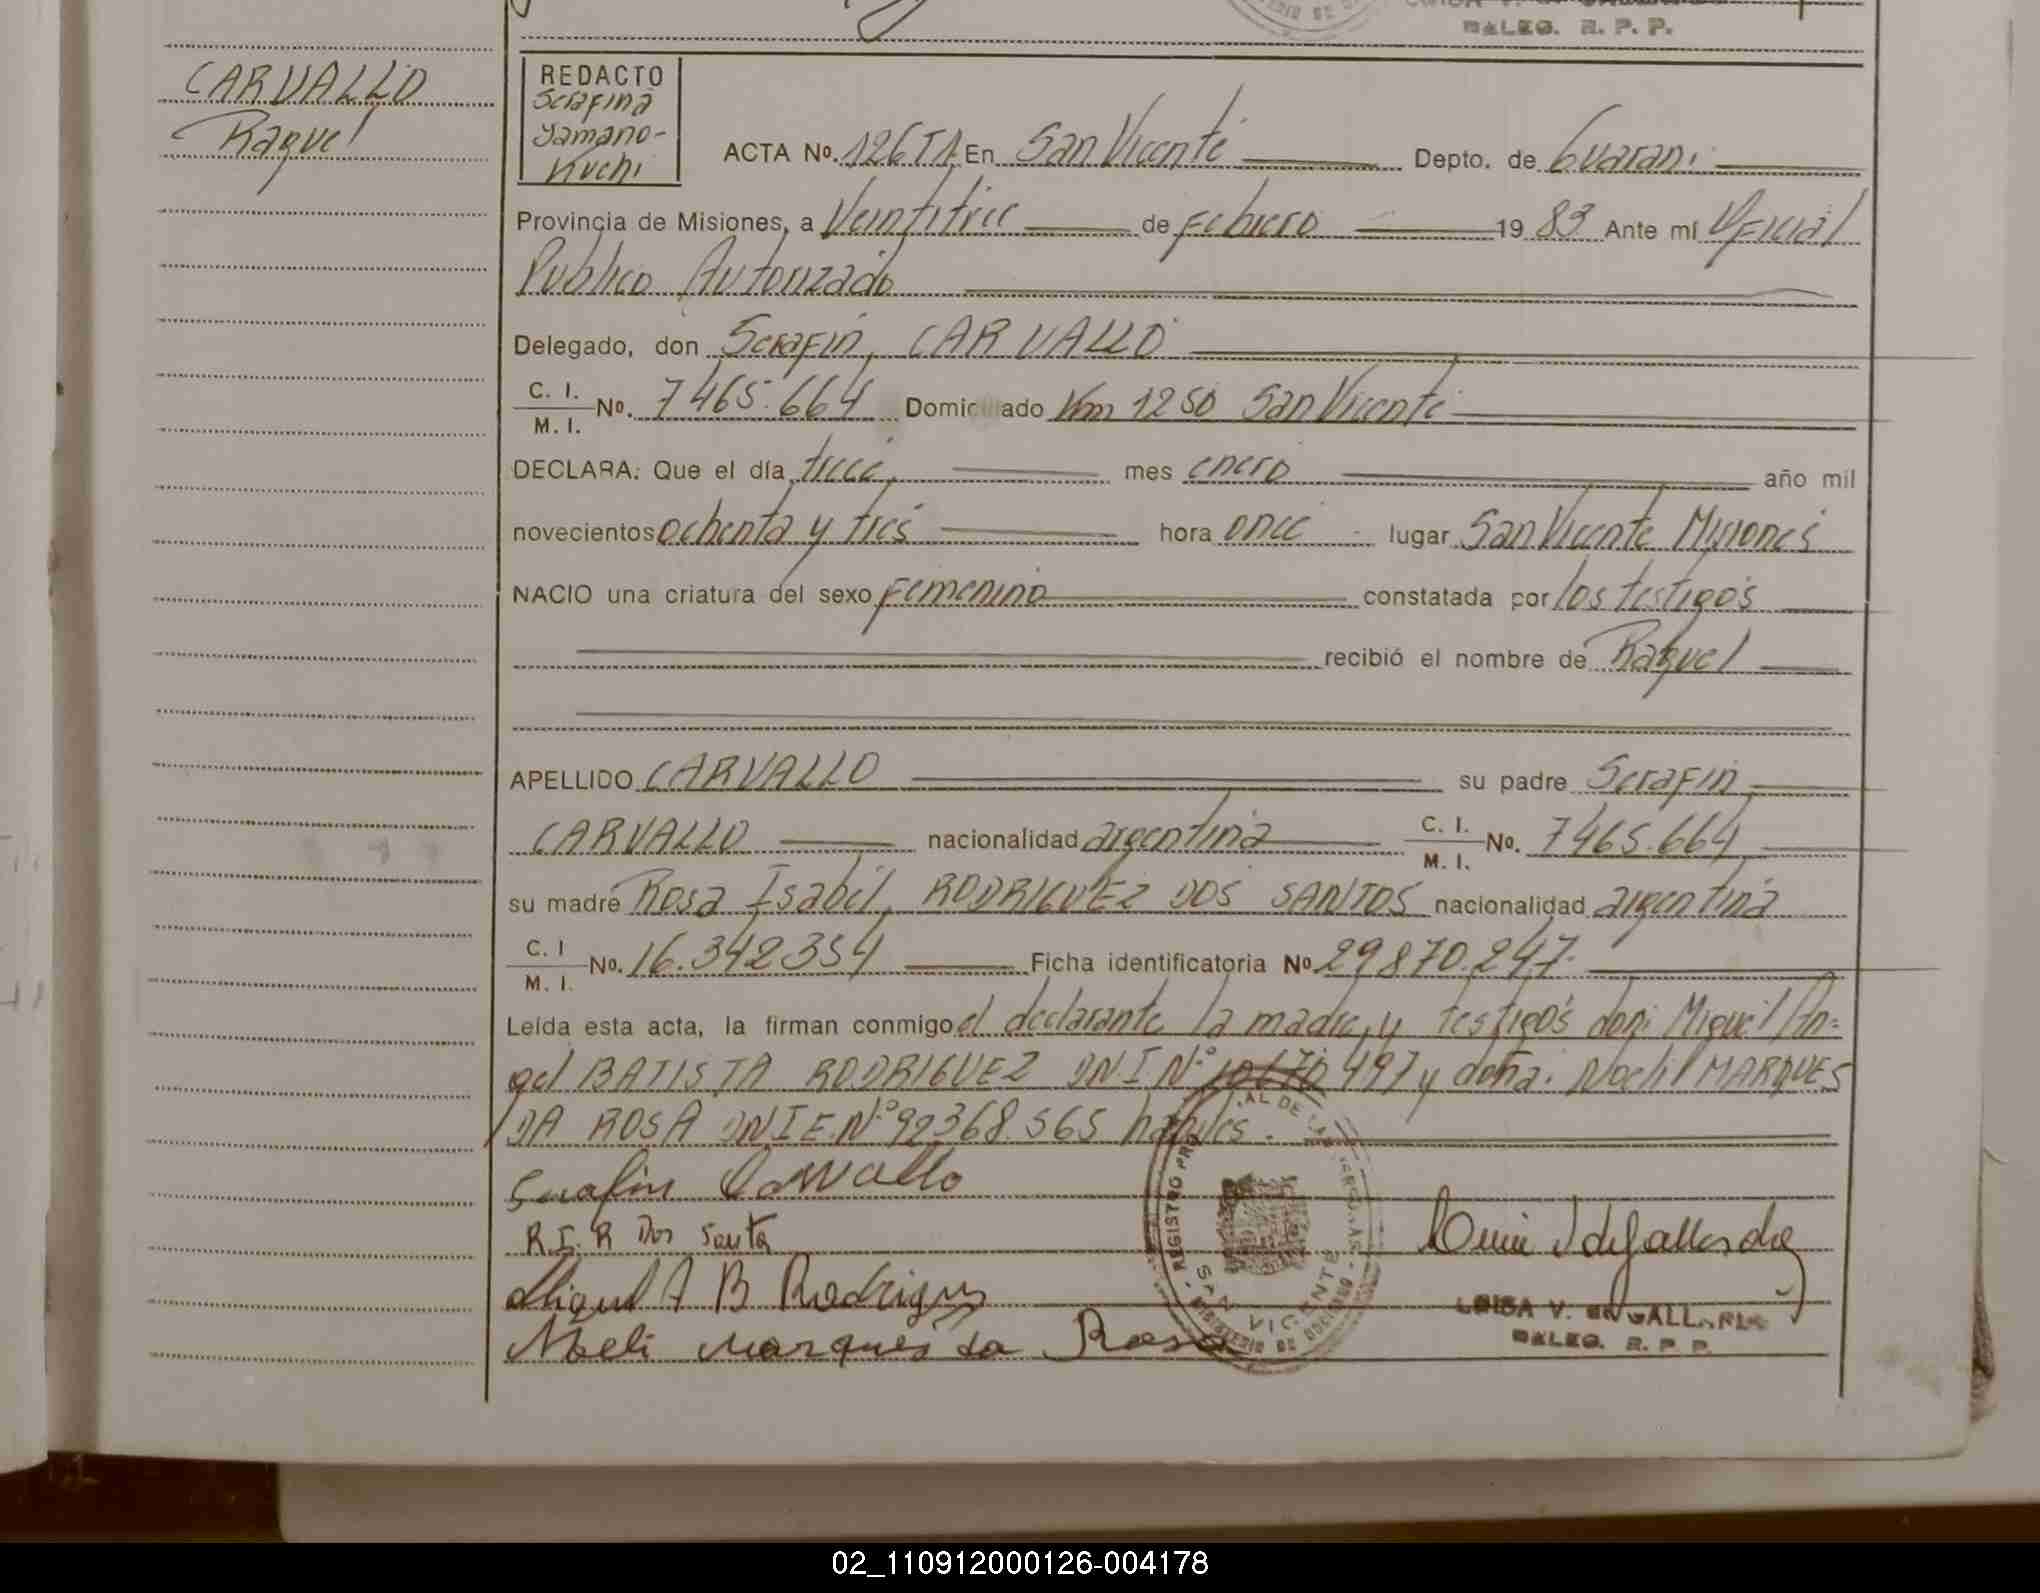 DALEG. R. P. P.
CARVALLO
Raquel
REDACTO
Serafina
Yamano-
Kuchi
ACTA Nº. 126T1. En San Vicente Depto. de Guaraní
Provincia de Misiones, a Veintitrés de Febrero 1983 Ante mí Oficial
Público Autorizado
Delegado, don Serafin, CARVALLO
C. I.
M. I. Nº. 7465.664 Domiciliado Km 1250 San Vicente
DECLARA: Que el día trece, mes enero año mil
novecientos ochenta y tres hora once lugar San Vicente Misiones
NACIO una criatura del sexo Femenino constatada por los testigos
recibió el nombre de Raquel
APELLIDO CARVALLO su padre Serafin,
CARVALLO nacionalidad argentina C. I.
M. I. Nº. 7465.664,
su madre Rosa Isabel, RODRIGUEZ DOS SANTOS nacionalidad argentina
C. I
M. I. Nº. 16.342354 Ficha identificatoria Nº 29870.247.
Leída esta acta, la firman conmigo el declarante, la madre, y testigos don: Miguel An=
gel BATISTA RODRIGUEZ DNI Nº 10670497 y doña: Noeli MARQUES
DA ROSA DNIE.Nº 92368.565 hábiles.
Serafin Carvallo
R.I.R Dos Santos
Miguel A B Rodrigues
Noeli Marques da Rosa
REGISTRO PRO AL DE LAS PERSONAS
SAN VICENTE
MINISTERIO DE GOBIERNO
LUISA V. DE GALLARDO
DALEG. R. P. P.
02_110912000126-004178